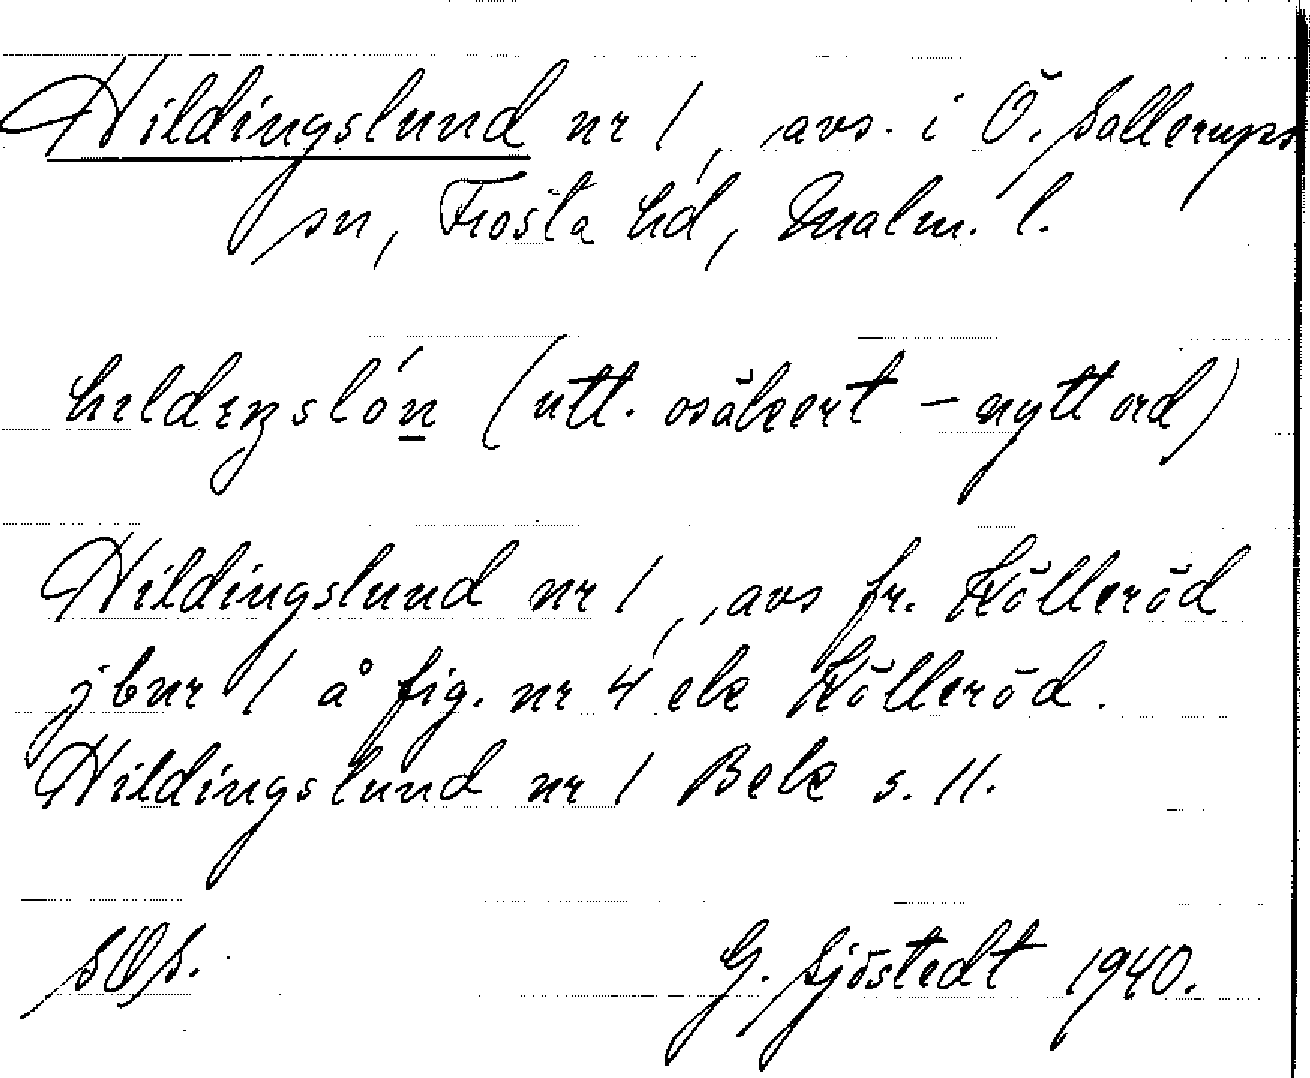 Hildingslund nr 1, avs. i Ö. Sallerups
sn, Frosta hd, Malm. l.
hıldıŋslón (utt. osäkert – nytt ord)
Hildingslund nr 1, avs fr. Kölleröd
jbnr 1 å fig. nr 4 ek Kölleröd.
Hildingslund nr 1 Bek s. 11.
SOS.
G. Sjöstedt 1940.